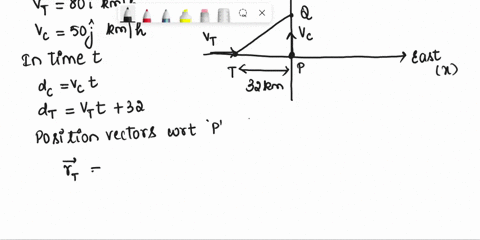 V_T = 80 i km/h
V_C = 50 j km/h
In time t
d_C = V_C t
d_T = V_T t + 32
Position vectors wrt 'P'
r⃗_T =
Q
V_T
V_C
T
P
East
(x)
32 km